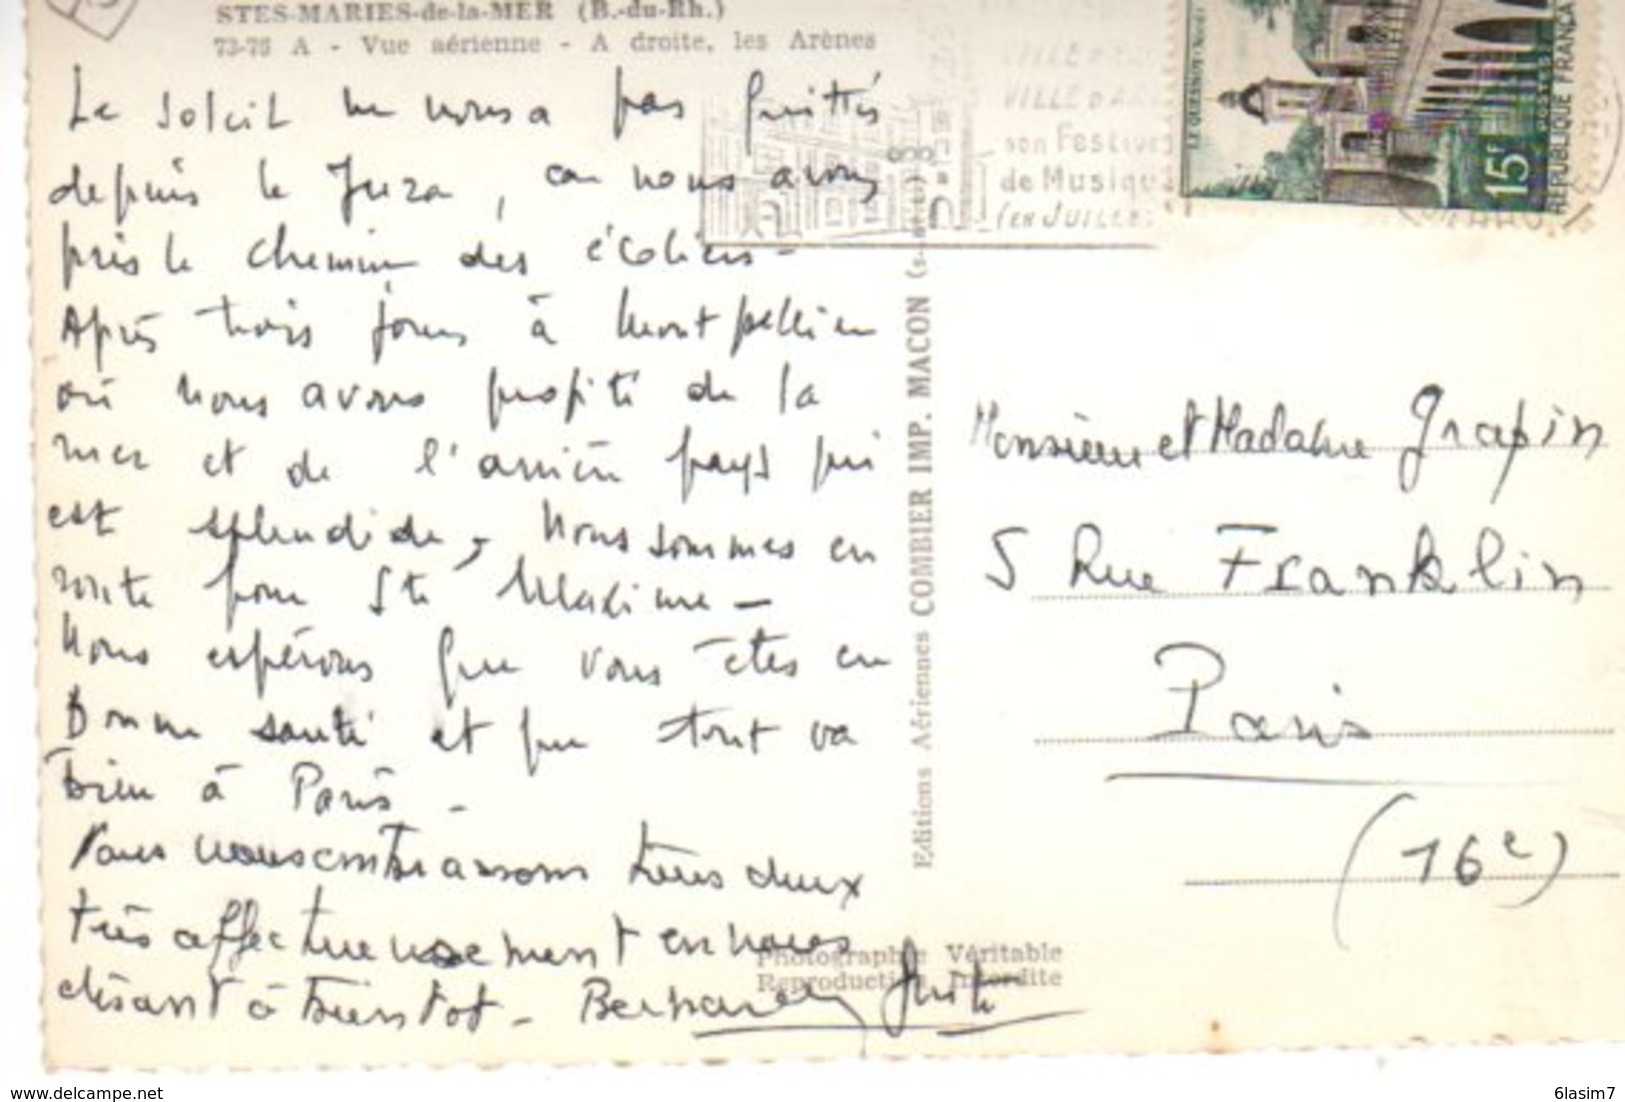 STES-MARIES-de-la-MER (B.-du-Rh.)
73-76 A - Vue aérienne - A droite, les Arènes
Le soleil ne nous a pas quittés
depuis le Jura, car nous avons
pris le chemin des écoliers -
Après trois jours à Montpellier
où nous avons profité de la
mer et de l'arrière pays qui
est splendide, nous sommes en
route pour Ste Maxime -
Nous espérons que vous êtes en
bonne santé et que tout va
bien à Paris -
Nous vous embrassons tous deux
très affectueusement en nous
disant à bientôt - Bernard
VILLE D'ART
son Festival
de Musique
(EN JUILLET)
LE QUESNOY (Nord)
15F
POSTES
REPUBLIQUE FRANÇAISE
Editions Aériennes COMBIER IMP. MACON
Photographie Véritable
Reproduction Interdite
Monsieur et Madame Grapin
5 Rue Franklin
Paris
(16e)
delcampe.net
6lasim7